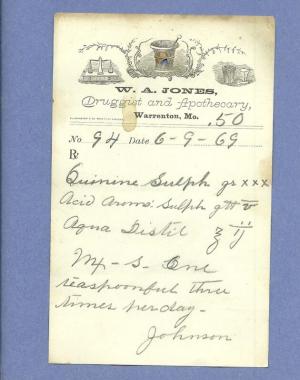 W. A. JONES,
Druggist and Apothecary,
Warrenton, Mo. .50
No. 94 Date 6-9-69
℞
Quinine Sulph gr xxx
Acid Aroma. Sulph
Aqua Distil ʒ ij
Mx - S - One
teaspoonful three
times per day -
Johnson